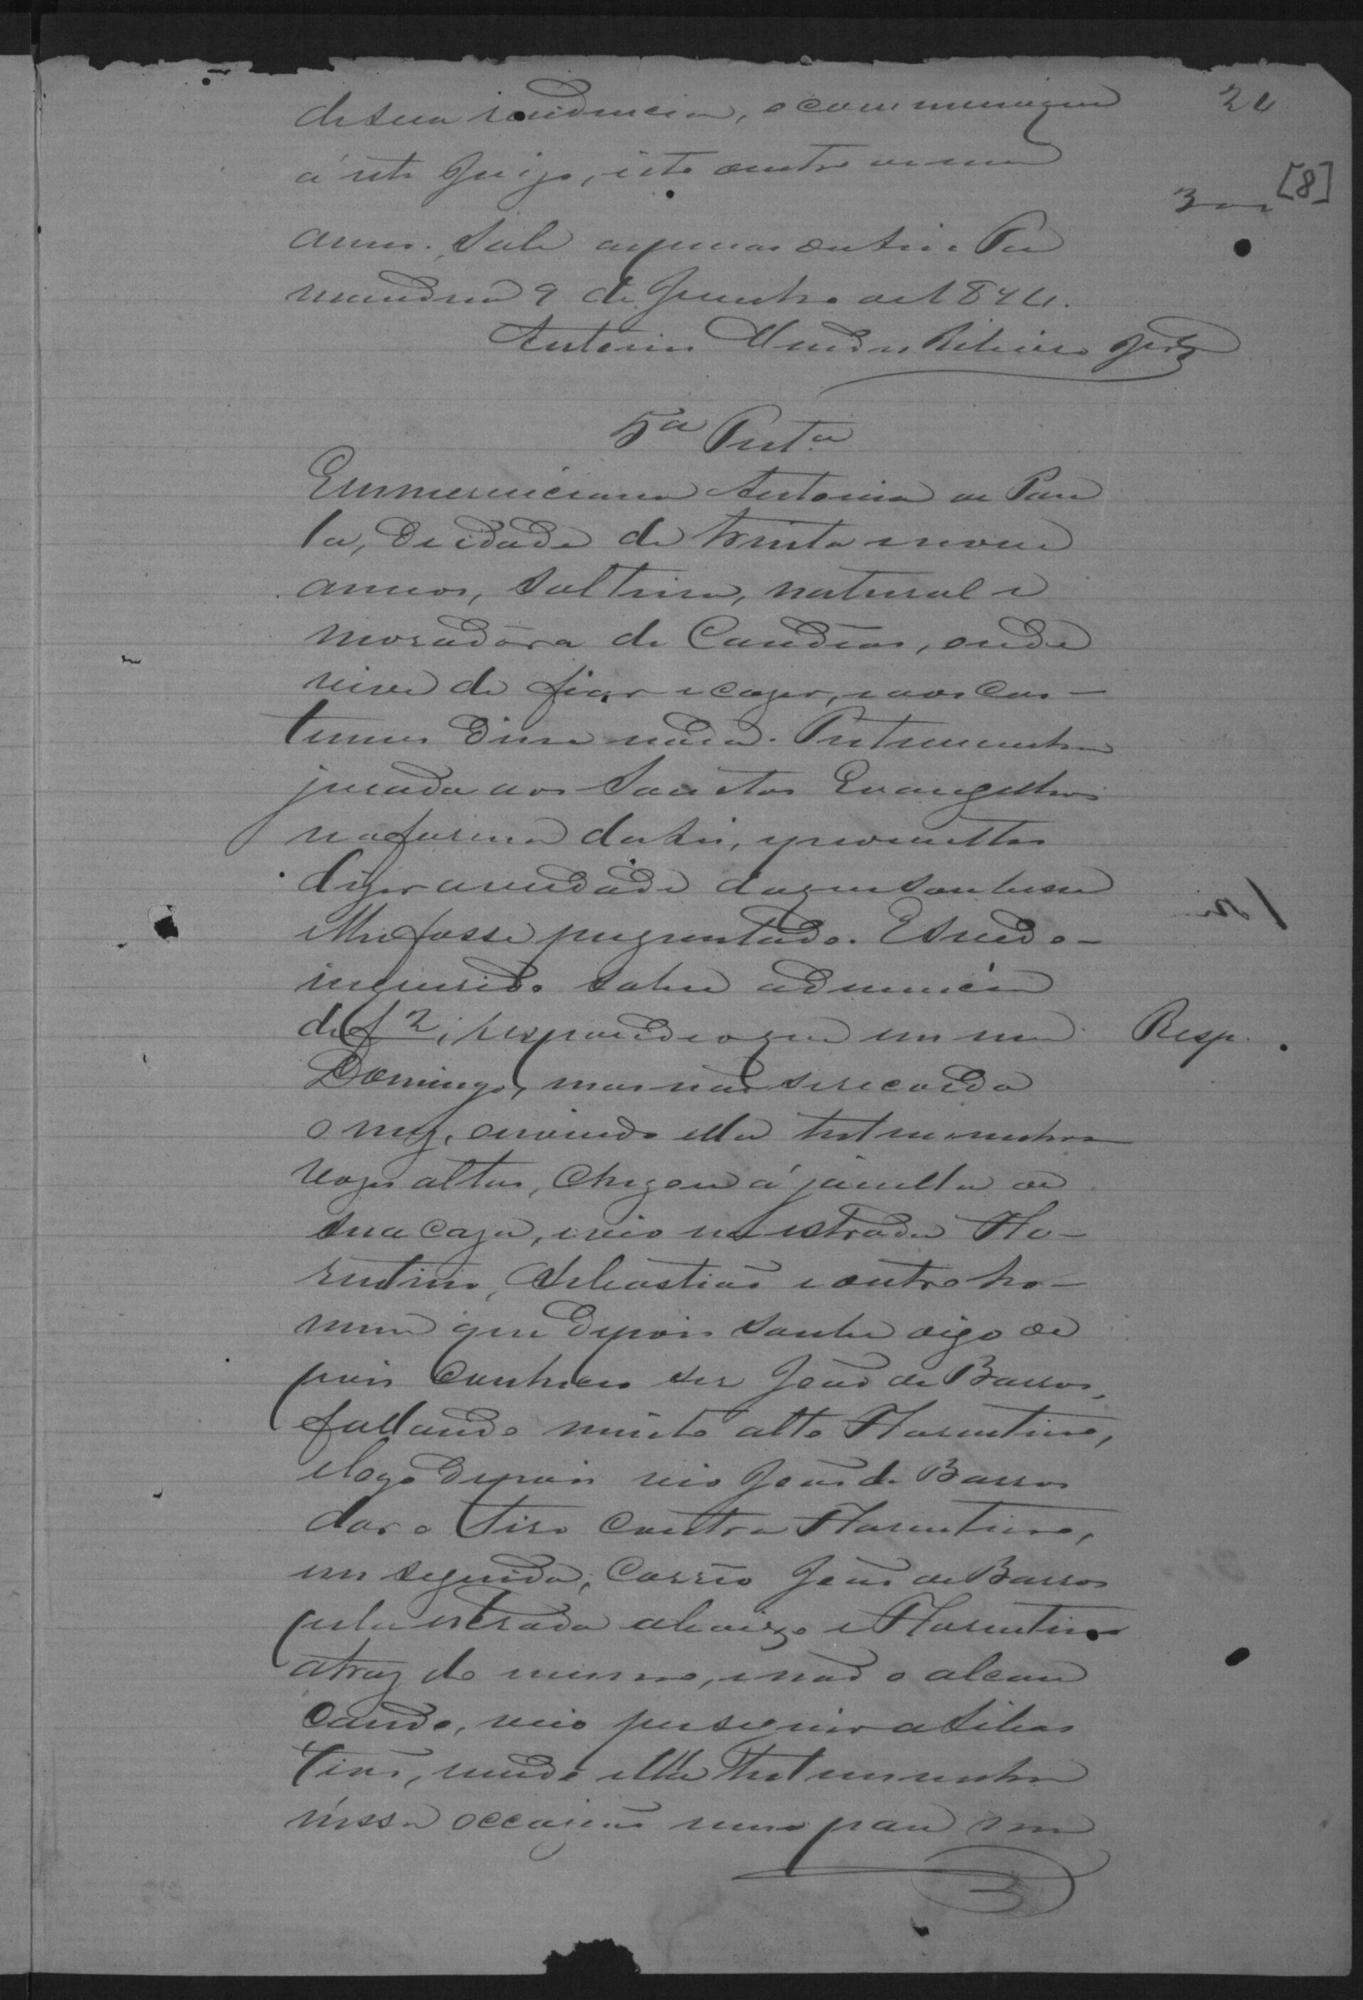 de sua residencia, e communiquem
á este Juizo, isto dentro de um
anno.
24
[8]
9 de Junho de 18
Antonio Mendes Ribeiro
5ª Testª
Emmerenciana Antonia de Pau
la, de idade de trinta e nove
annos, solteira, natural e
moradôra de Candêas, onde
vive de fiar e cozer, e aos cos-
tumes disse nada. Testemunha
jurada aos Sanctos Evangelhos
na forma da Lei, e prometteo
dizer a verdade do que soubesse
e lhe fosse perguntado. E sendo
inquirida sobre a denuncia
de f 2, respondeo que em um
Resp.
Domingo, mas não se recorda
o mez, ouvindo ella testemunha
vozes altas, chegou á janella de
sua caza, e vio na estrada Flo-
rentino, Sebastião e outro ho-
mem que depois soube digo de
pois conheceo ser João de Barros,
fallando muito alto Florentino,
e logo depois vio João de Barros
dar o tiro contra Florentino,
em seguida, corrêo João de Barros
pela estrada abaixo e Florentino
atraz do mesmo, e não o alcan
çando, veio perseguir a Sebas
tião, vendo ella testemunha
nessa occazião um pau em